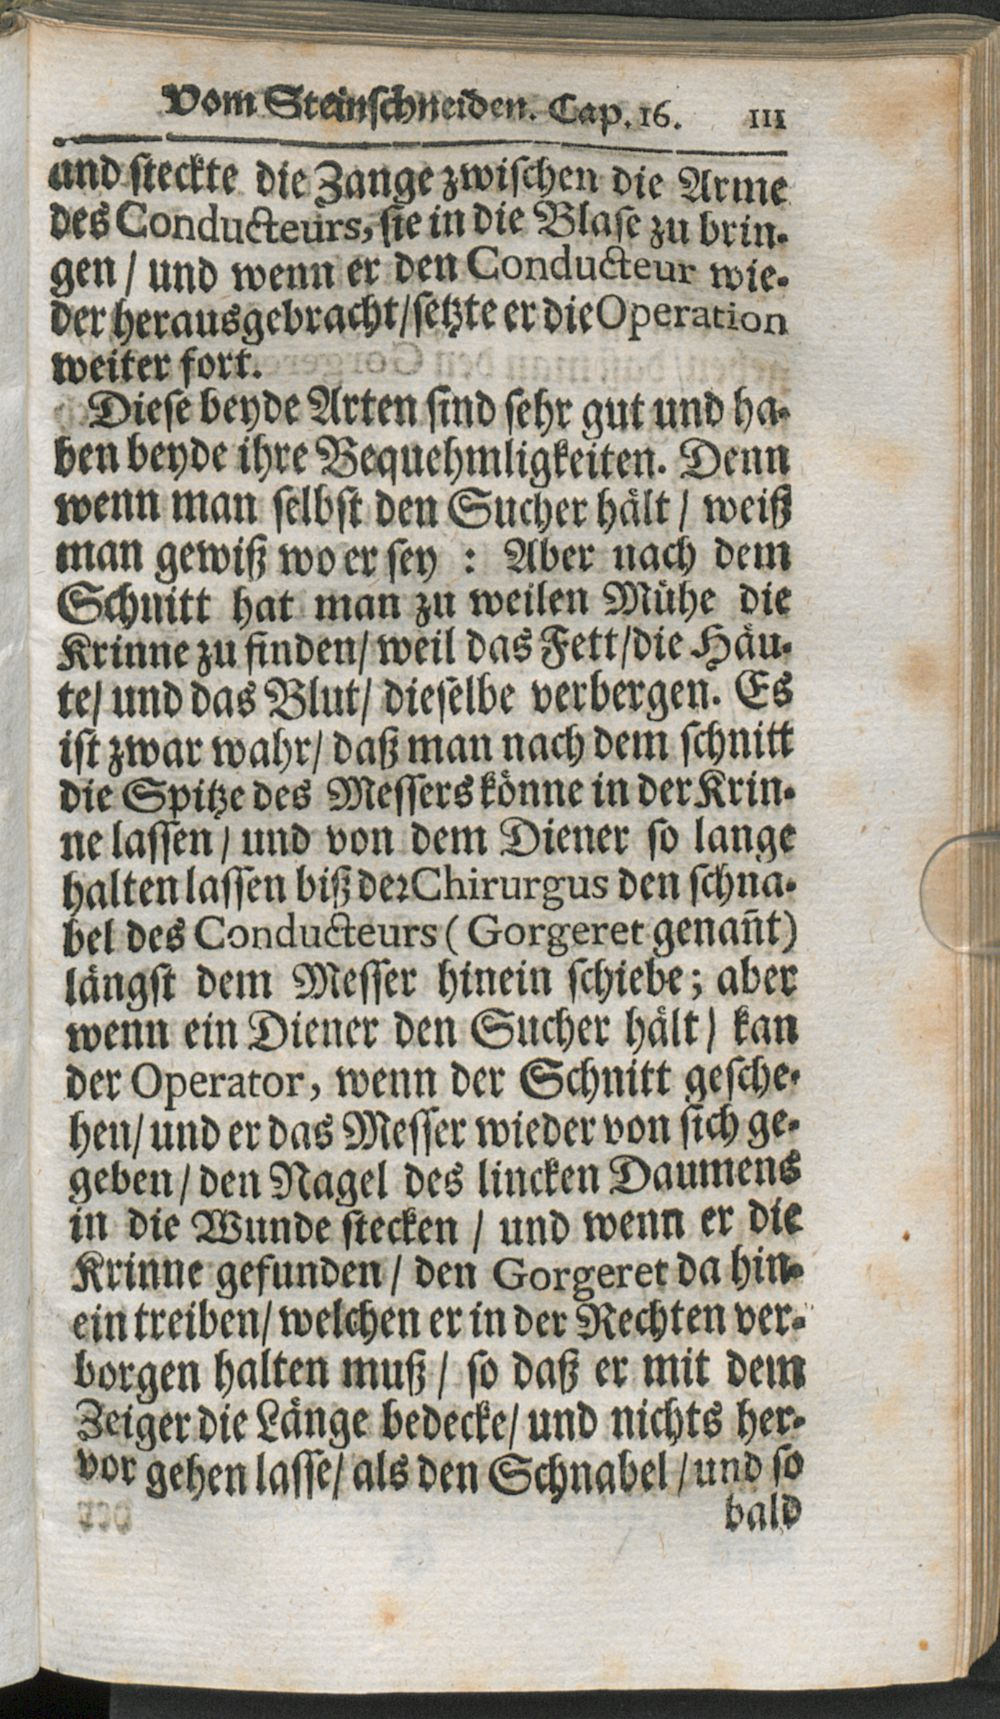 Vom Steinschneiden. Cap. 16. 111
und steckte die Zange zwischen die Arme
des Conducteurs, sie in die Blase zu brin-
gen / und wenn er den Conducteur wie-
der herausgebracht / setzte er die Operation
weiter fort.
Diese beyde Arten sind sehr gut und ha-
ben beyde ihre Bequehmligkeiten. Denn
wenn man selbst den Sucher hält / weiß
man gewiß wo er sey : Aber nach dem
Schnitt hat man zu weilen Mühe die
Krinne zu finden / weil das Fett / die Häu-
te / und das Blut / dieselbe verbergen. Es
ist zwar wahr / daß man nach dem schnitt
die Spitze des Messers könne in der Krin-
ne lassen / und von dem Diener so lange
halten lassen biß der Chirurgus den schna-
bel des Conducteurs ( Gorgeret genañt)
längst dem Messer hinein schiebe; aber
wenn ein Diener den Sucher hält / kan
der Operator, wenn der Schnitt gesche-
hen / und er das Messer wieder von sich ge-
geben / den Nagel des lincken Daumens
in die Wunde stecken / und wenn er die
Krinne gefunden / den Gorgeret da hin-
ein treiben / welchen er in der Rechten ver-
borgen halten muß / so daß er mit dem
Zeiger die Länge bedecke / und nichts her-
vor gehen lasse / als den Schnabel / und so
bald